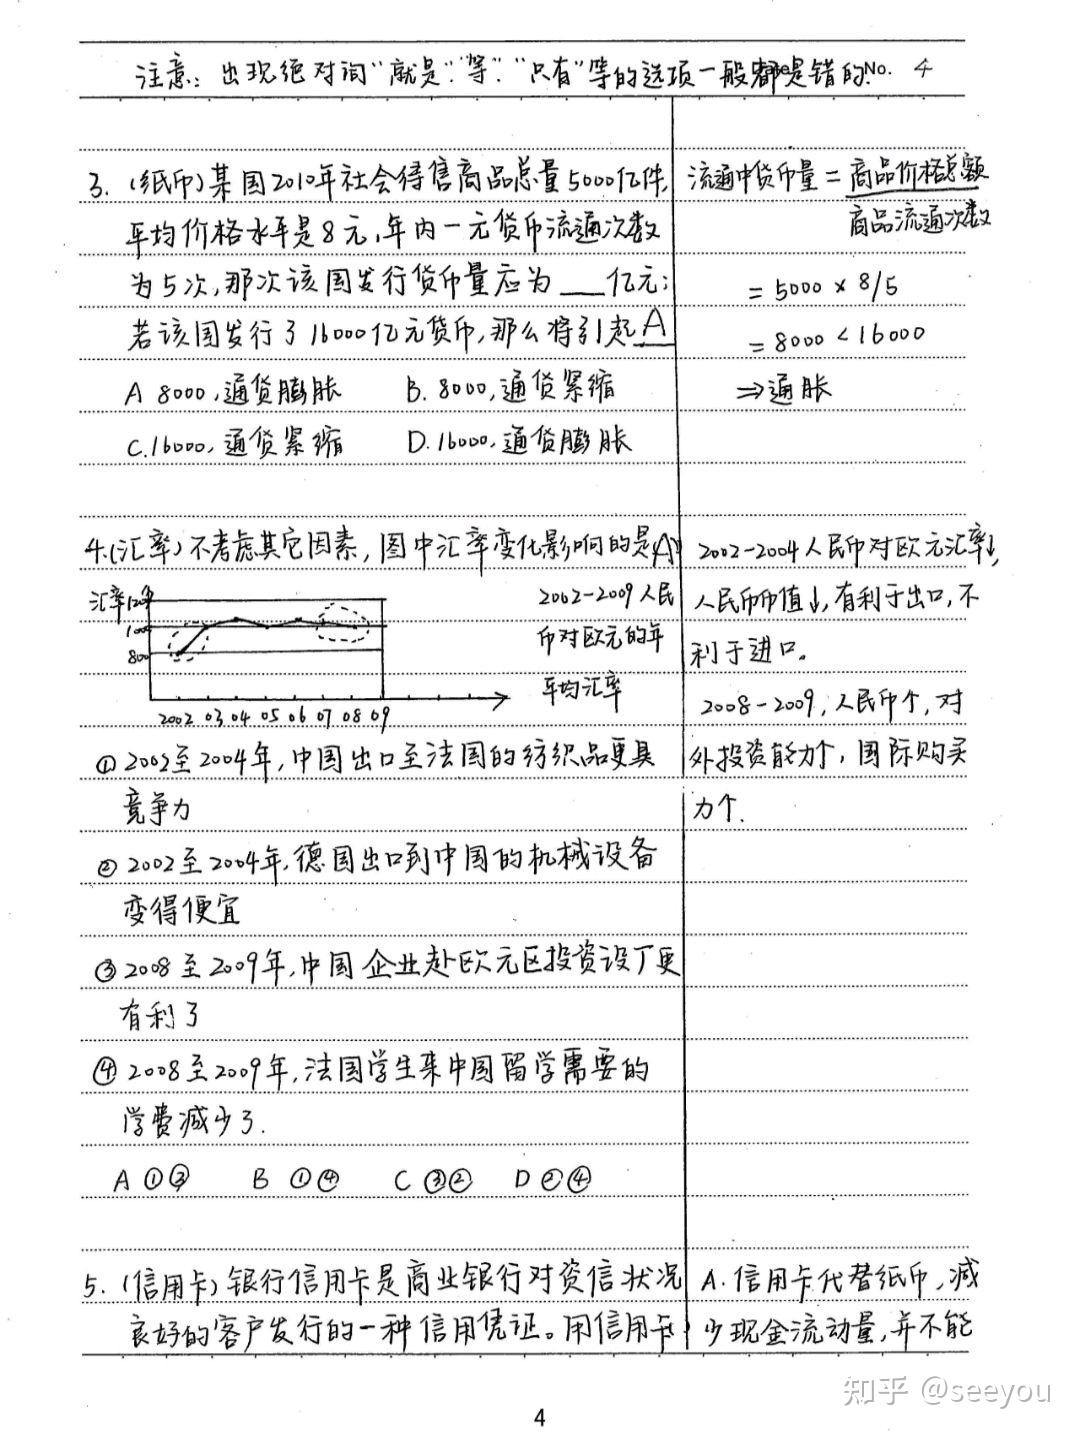 注意：出现绝对词"就是"."等"."只有"等的选项一般都是错的. No. 4
3.（纸币）某国2010年社会待售商品总量5000亿件,
平均价格水平是8元,年内一元货币流通次数
为5次,那次该国发行货币量应为___亿元;
若该国发行了16000亿元货币,那么将引起A
A 8000,通货膨胀 B. 8000,通货紧缩
C.16000,通货紧缩 D.16000,通货膨胀
流通中货币量=商品价格总额
商品流通次数
=5000×8/5
=8000<16000
⇒通胀
4.（汇率）不考虑其它因素,图中汇率变化影响的是(A)
汇率
1000
800
2002 03 04 05 06 07 08 09
2002-2009人民
币对欧元的年
平均汇率
①2002至2004年,中国出口至法国的纺织品更具
竞争力
②2002至2004年,德国出口到中国的机械设备
变得便宜
③2008至2009年,中国企业赴欧元区投资设厂更
有利了
④2008至2009年,法国学生来中国留学需要的
学费减少了.
A ①③ B ①④ C ③② D ②④
2002-2004人民币对欧元汇率↓,
人民币币值↓,有利于出口,不
利于进口。
2008-2009,人民币↑,对
外投资能力↑,国际购买
力↑.
5.（信用卡）银行信用卡是商业银行对资信状况
良好的客户发行的一种信用凭证。用信用卡
A.信用卡代替纸币,减
少现金流动量,并不能
知乎 @seeyou
4